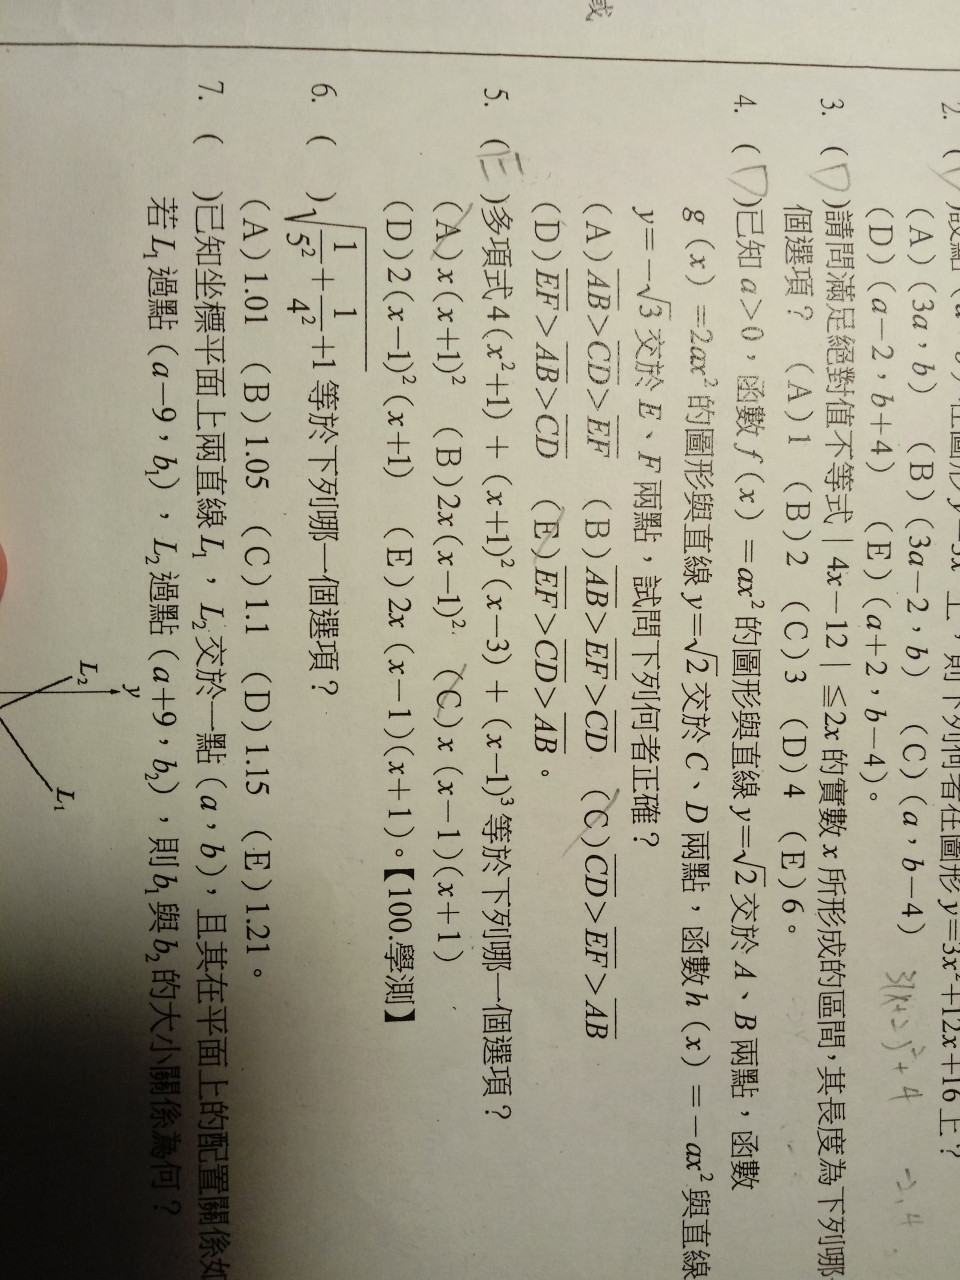 或
2. ( 在圖形 y=3x 上,則下列何者在圖形 y=3x²+12x+16 上?
(A)(3a,b) (B)(3a-2,b) (C)(a,b-4)
(D)(a-2,b+4) (E)(a+2,b-4)。
3(x+2)²+4 -2,4
3. (D)請問滿足絕對值不等式|4x-12|≦2x 的實數 x 所形成的區間,其長度為下列哪
個選項? (A)1 (B)2 (C)3 (D)4 (E)6。
4. (D)已知 a>0,函數 f(x)=ax² 的圖形與直線 y=√2 交於 A、B 兩點,函數
g(x)=2ax² 的圖形與直線 y=√2 交於 C、D 兩點,函數 h(x)=-ax² 與直線
y=-√3 交於 E、F 兩點,試問下列何者正確?
(A)A̅B̅>C̅D̅>E̅F̅ (B)A̅B̅>E̅F̅>C̅D̅ (C)C̅D̅>E̅F̅>A̅B̅
(D)E̅F̅>A̅B̅>C̅D̅ (E)E̅F̅>C̅D̅>A̅B̅。
5. (E)多項式 4(x²+1)+(x+1)²(x-3)+(x-1)³ 等於下列哪一個選項?
(A)x(x+1)² (B)2x(x-1)² (C)x(x-1)(x+1)
(D)2(x-1)²(x+1) (E)2x(x-1)(x+1)。【100.學測】
6. ( )√(1/5²+1/4²+1) 等於下列哪一個選項?
(A)1.01 (B)1.05 (C)1.1 (D)1.15 (E)1.21。
7. ( )已知坐標平面上兩直線 L₁,L₂ 交於一點(a,b),且其在平面上的配置關係如
若 L₁ 過點(a-9,b₁),L₂ 過點(a+9,b₂),則 b₁ 與 b₂ 的大小關係為何?
y
L₂
L₁